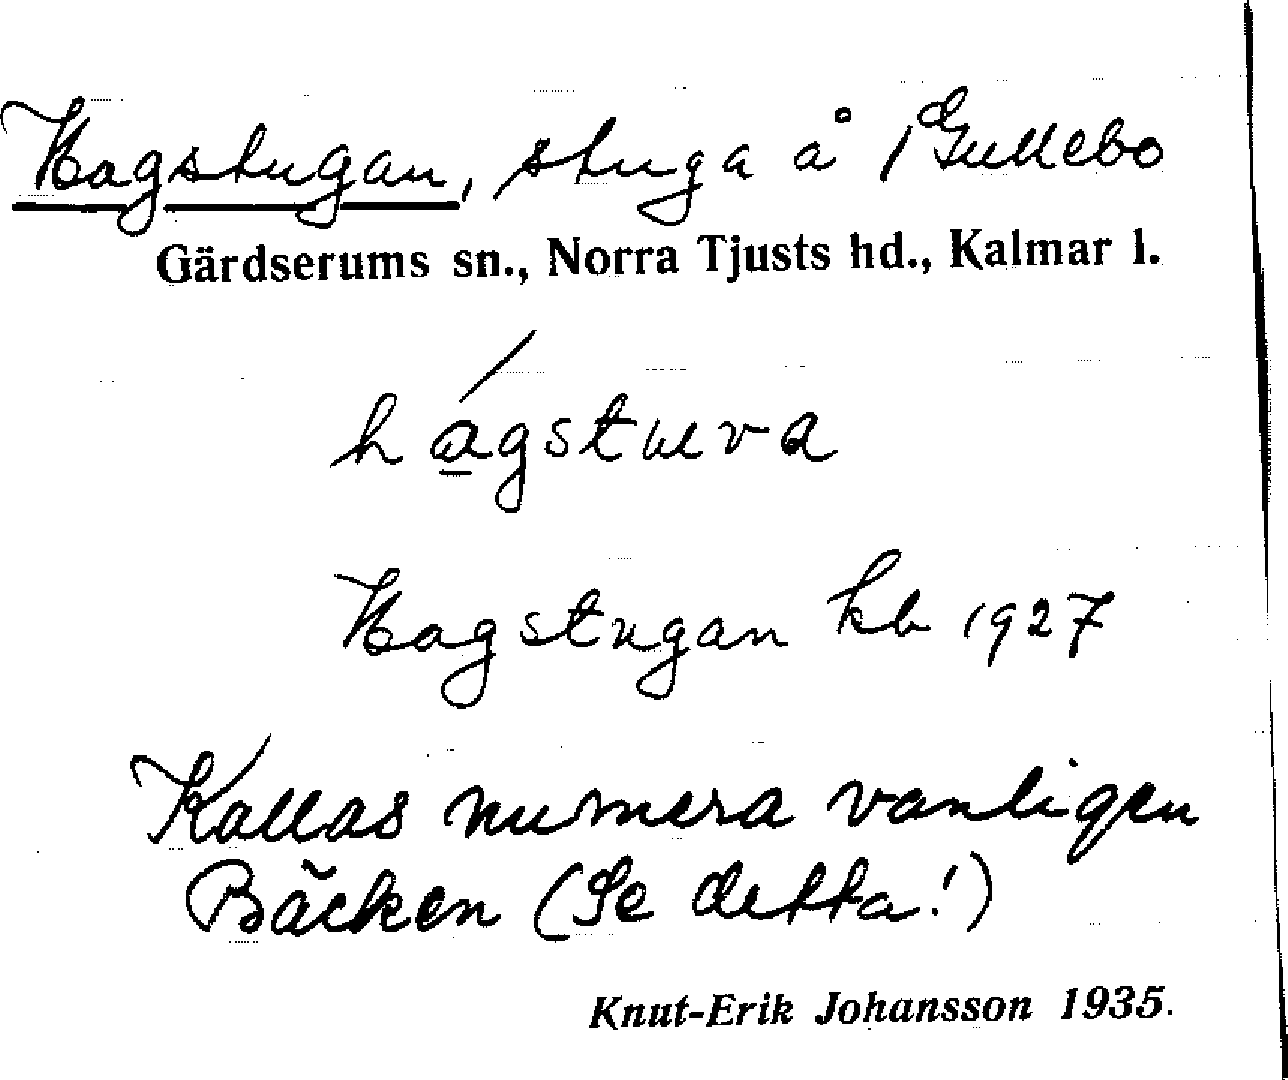 Hagstugan, stuga å 1 Gullebo
Gärdserums sn., Norra Tjusts hd., Kalmar l.
hágstuva
Hagstugan kb 1927
Kallas numera vanligen
Bäcken (Se detta!)
Knut-Erik Johansson 1935.